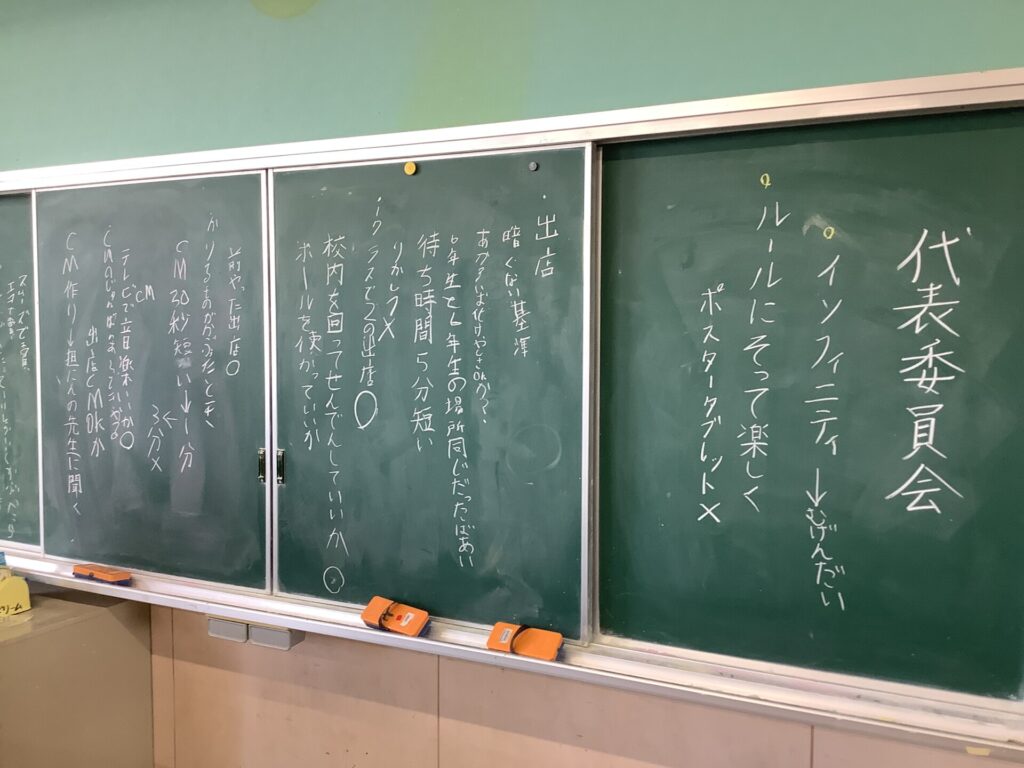 代表委員会
インフィニティ→むげんだい
ルールにそって楽しく
ポスタータブレット×
・出店
暗くない基準
6年生と6年生の場所同じだったばあい
待ち時間5分短い
りかしつ×
1クラスで2つの出店〇
校内を回ってせんでんしていいか〇
ボールを使がっていいか
前やった出店〇
かりるものがかぶったとき
CM30秒短い→1分
←3分×
CM
テレビで音楽いいか〇
出店とMOKか
CM作り→担にんの先生に聞く